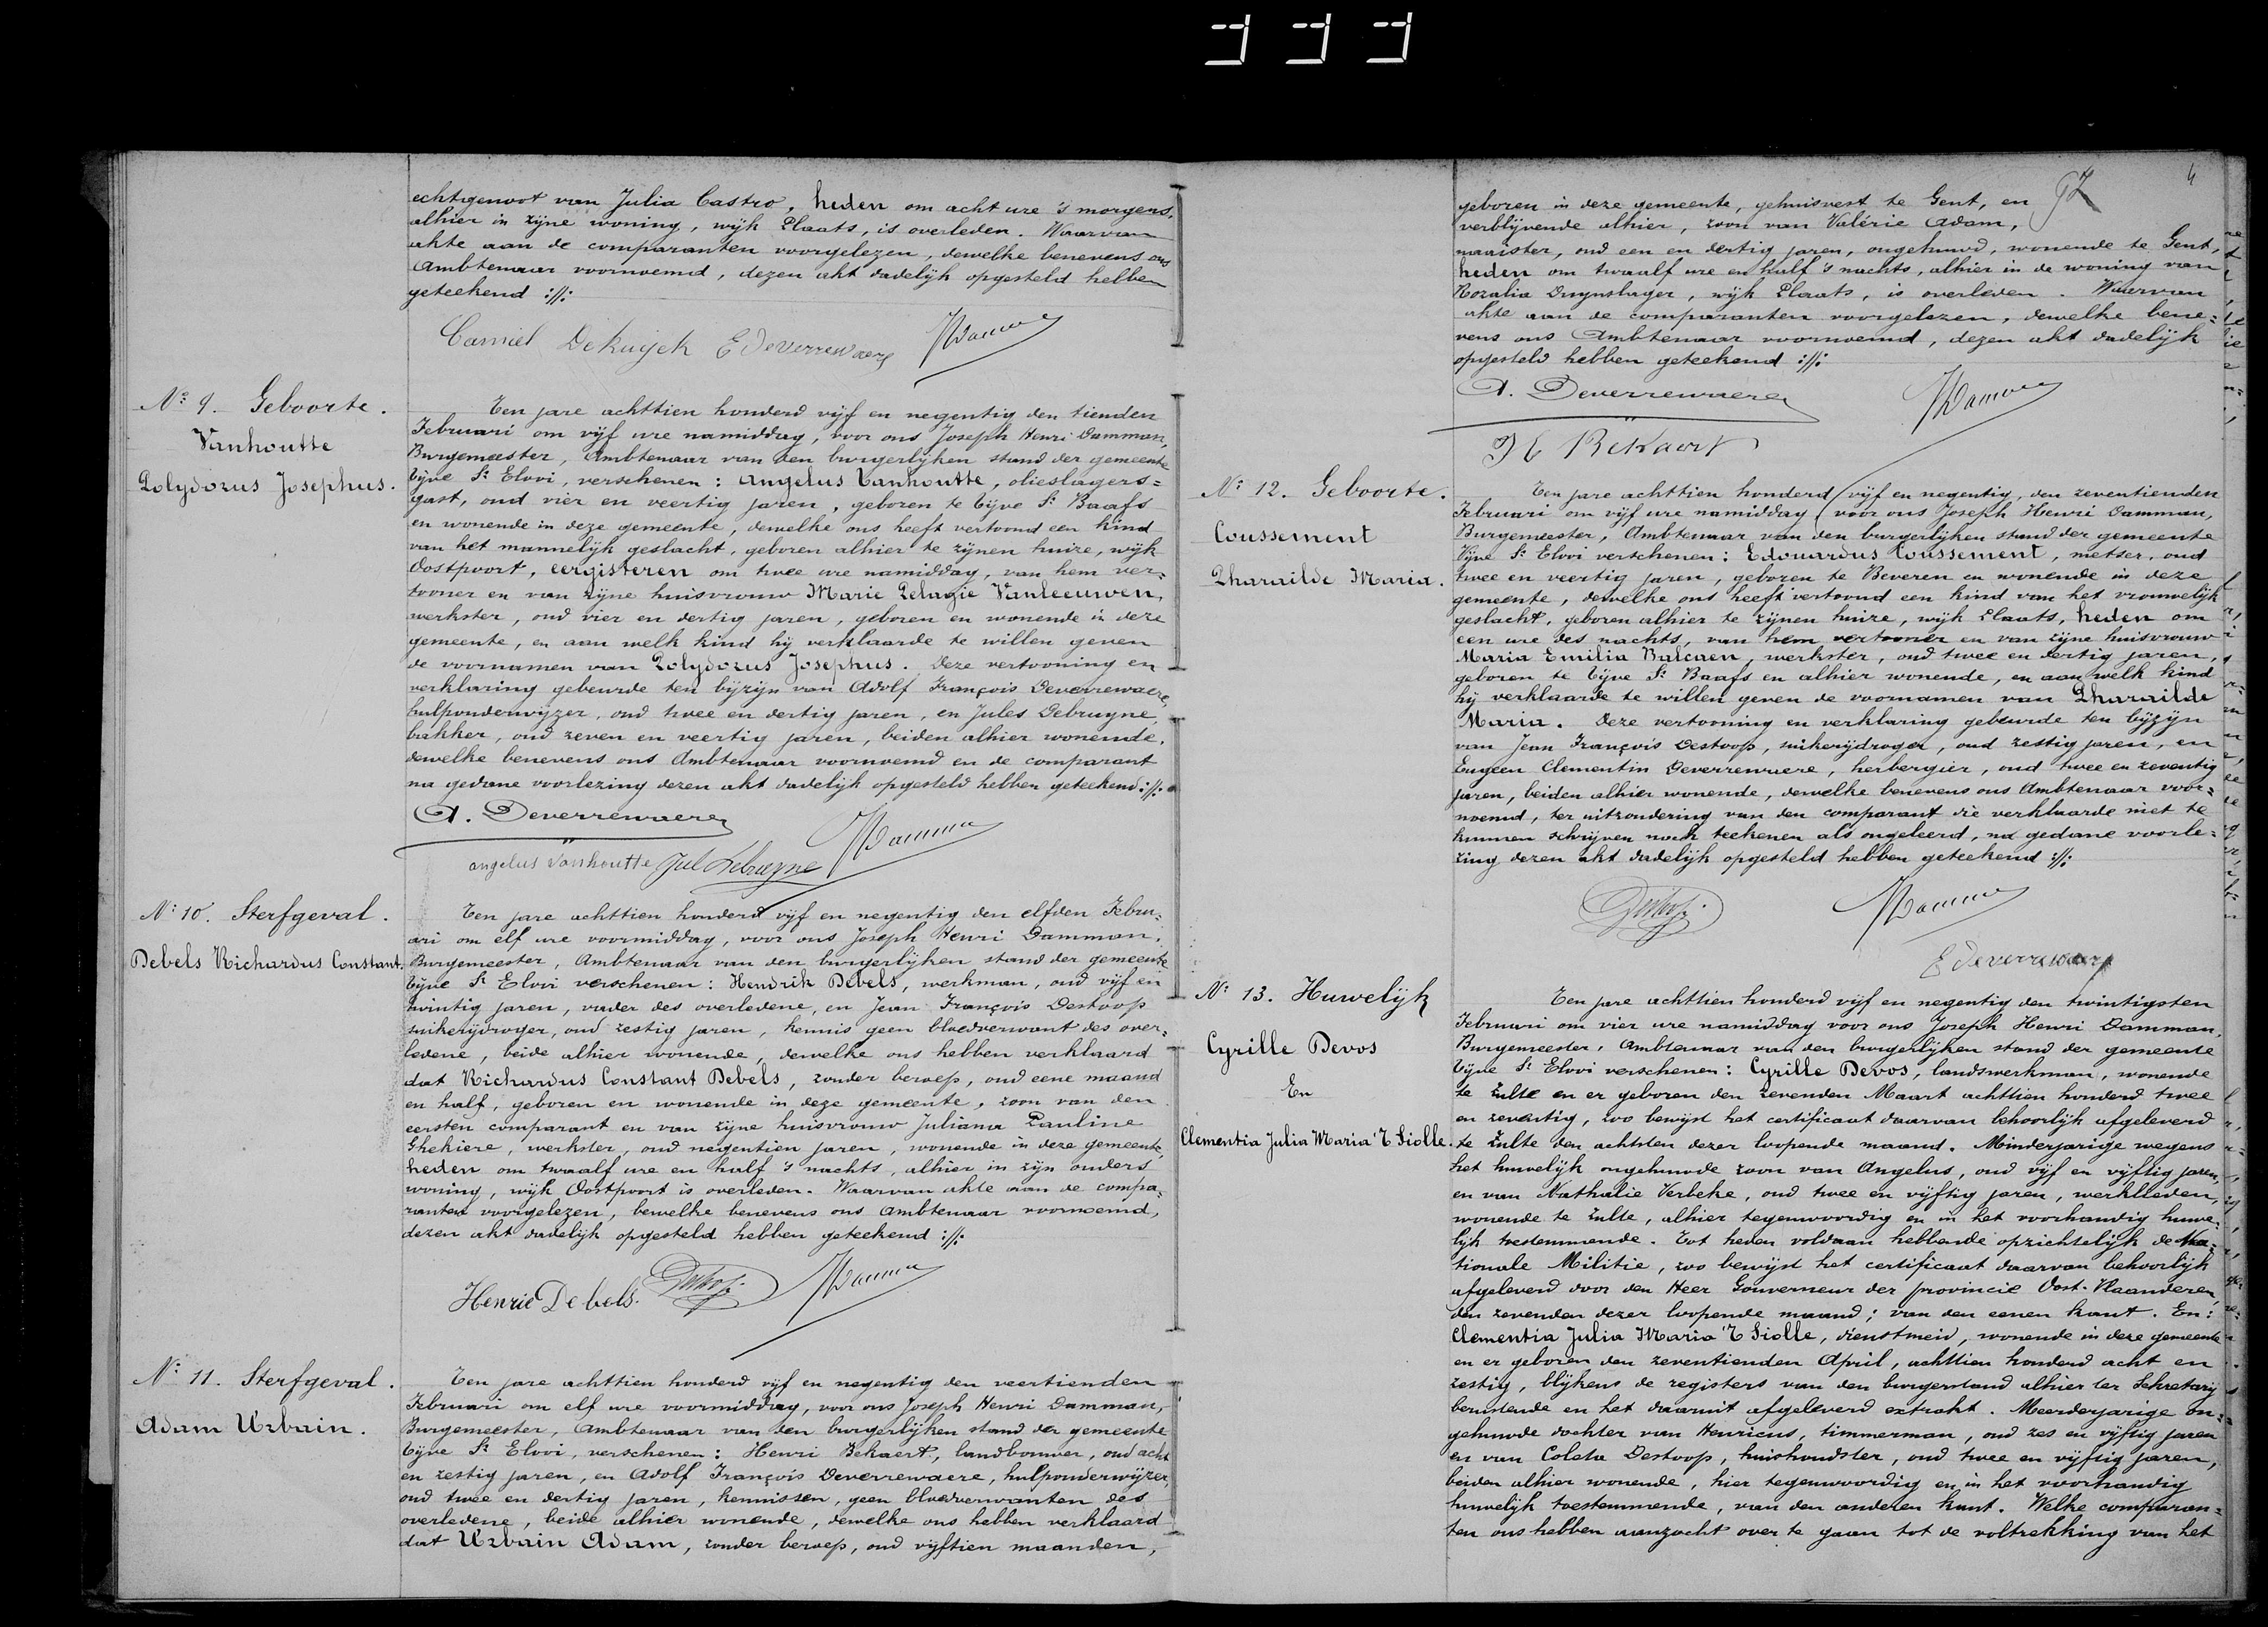 echtgenoot van Julia Castro, heden om acht ure 's morgens,
alhier in zijne woning, wijk Plaats, is overleden. Waarvan
akte aan de comparanten voorgelezen, dewelke benevens ons
Ambtenaar voornoemd, dezen akt dadelijk opgesteld hebben
geteekend ://:
Camiel DeKuijck E Deverrewaere JHDamman
No 9. Geboorte.
Vanhoutte
Polydorus Josephus.
Ten jare achttien honderd vijf en negentig den tienden
Februari om vijf ure namiddag, voor ons Joseph Henri Damman,
Burgemeester, Ambtenaar van den burgerlijken stand der gemeente
Vijve St Elooi, verschenen: Angelus Vanhoutte, olieslagers=
gast, oud vier en veertig jaren, geboren te Vijve St Baafs
en wonende in deze gemeente, dewelke ons heeft vertoond een kind
van het mannelijk geslacht, geboren alhier te zijnen huize, wijk
Oostpoort, eergisteren om twee ure namiddag, van hem ver=
tooner en van zijne huisvrouw Marie Pelagie Vanleeuwen,
werkster, oud vier en dertig jaren, geboren en wonende in deze
gemeente, en aan welk kind hij verklaarde te willen geven
de voornamen van Polydorus Josephus. Deze vertooning en
verklaring gebeurde ten bijzijn van Adolf François Deverrewaere,
hulponderwijzer, oud twee en dertig jaren, en Jules Debruyne,
bakker, oud zeven en veertig jaren, beiden alhier wonende,
dewelke benevens ons Ambtenaar voornoemd en de comparant
na gedane voorlezing dezen akt dadelijk opgesteld hebben geteekend ://:
A. Deverrewaere
angelus vanhoutte Jul Debruyne JHDamman
No 10. Sterfgeval.
Debels Richardus Constant.
Ten jare achttien honderd vijf en negentig den elfden Febru=
ari om elf ure voormiddag, voor ons Joseph Henri Damman,
Burgemeester, Ambtenaar van den burgerlijken stand der gemeente
Vijve St Elooi verschenen: Hendrik Debels, werkman, oud vijf en
twintig jaren, vader des overledene, en Jean François Destoop
suikerijdroger, oud zestig jaren, kennis geen bloedverwant des over=
ledene, beide alhier wonende, dewelke ons hebben verklaard
dat Richardus Constant Debels, zonder beroep, oud eene maand
en half, geboren en wonende in deze gemeente, zoon van den
eersten comparant en van zijne huisvrouw Juliana Pauline
Ghekiere, werkster, oud negentien jaren, wonende in deze gemeente,
heden om twaalf ure en half 's nachts, alhier in zijn ouders
woning, wijk Oostpoort is overleden. Waarvan akte aan de compa=
ranten voorgelezen, bewelke benevens ons Ambtenaar voornoemd,
dezen akt dadelijk opgesteld hebben geteekend ://:
Henrie Debels. Destoop JHDamman
No 11. Sterfgeval.
Adam Urbain.
Ten jare achttien honderd vijf en negentig den veertienden
Februari om elf ure voormiddag, voor ons Joseph Henri Damman,
Burgemeester, Ambtenaar van den burgerlijken stand der gemeente
Vijve St Elooi, verschenen: Henri Bekaert, landbouwer, oud acht
en zestig jaren, en Adolf François Deverrewaere, hulponderwijzer,
oud twee en dertig jaren, kennissen, geen bloedverwanten des
overledene, beide alhier wonende, dewelke ons hebben verklaard
dat Urbain Adam, zonder beroep, oud vijftien maanden,
4
geboren in deze gemeente, gehuisvest te Gent, en
verblijvende alhier, zoon van Valérie Adam,
naaister, oud een en dertig jaren, ongehuwd, wonende te Gent,
heden om twaalf ure en half 's nachts, alhier in de woning van
Rozalia Duynslager, wijk Plaats, is overleden. Waarvan
akte aan de comparanten voorgelezen, dewelke bene=
vens ons Ambtenaar voornoemd, dezen akt dadelijk
opgesteld hebben geteekend ://:
A. Deverrewaere JHDamman
H Bekaert
No 12. Geboorte.
Coussement
Pharailde Maria.
Ten jare achttien honderd vijf en negentig, den zeventienden
Februari om vijf ure namiddag voor ons Joseph Henri Damman,
Burgemeester, Ambtenaar van den burgerlijken stand der gemeente
Vijve St Elooi verschenen: Edouardus Coussement, metser, oud
twee en veertig jaren, geboren te Beveren en wonende in deze
gemeente, dewelke ons heeft vertoond een kind van het vrouwelijk
geslacht, geboren alhier te zijnen huize, wijk Plaats, heden om
een ure des nachts, van hem vertooner en van zijne huisvrouw
Maria Emilia Balcaen, werkster, oud twee en dertig jaren,
geboren te Vijve St Baafs en alhier wonende, en aan welk kind
hij verklaarde te willen geven de voornamen van Pharailde
Maria. Deze vertooning en verklaring gebeurde ten bijzijn
van Jean François Destoop, suikerijdroger, oud zestig jaren, en
Eugeen Clementin Deverrewaere, herbergier, oud twee en zeventig
jaren, beiden alhier wonende, dewelke benevens ons Ambtenaar voor=
noemd, ter uitzondering van den comparant die verklaarde niet te
kunnen schrijven noch teekenen als ongeleerd, na gedane voorle=
zing dezen akt dadelijk opgesteld hebben geteekend ://:
Destoop JHDamman
E Deverrewaere
No 13. Huwelijk
Cyrille Devos
En
Clementia Julia Maria 'T Siolle.
Ten jare achttien honderd vijf en negentig den twintigsten
Februari om vier ure namiddag voor ons Joseph Henri Damman,
Burgemeester, Ambtenaar van den burgerlijken stand der gemeente
Vijve St Elooi verschenen: Cyrille Devos, landswerkman, wonende
te Zulte en er geboren den zevenden Maart achttien honderd twee
en zeventig, zoo bewijst het certificaat daarvan behoorlijk afgeleverd
te Zulte den achtsten dezer loopende maand. Minderjarige wegens
het huwelijk ongehuwde zoon van Angelus, oud vijf en vijftig jaren,
en van Nathalie Verbeke, oud twee en vijftig jaren, werklieden,
wonende te Zulte, alhier tegenwoordig en in het voorhandig huwe=
lijk toestemmende. Tot heden voldaan hebbende opzichtelijk de Na=
tionale Militie, zoo bewijst het certificaat daarvan behoorlijk
afgeleverd door den Heer Gouverneur der provincie Oost-Vlaanderen,
den zevenden dezer loopende maand; van den eenen kant. En:
Clementia Julia Maria 'T Siolle, dienstmeid, wonende in deze gemeente
en er geboren den zeventienden April, achttien honderd acht en
zestig, blijkens de registers van den burgerstand alhier ter Sekretarij
berustende en het daaruit afgeleverd extrakt. Meerderjarige on=
gehuwde dochter van Henricus, timmerman, oud zes en vijftig jaren
en van Coleta Destoop, huishoudster, oud twee en vijftig jaren,
beiden alhier wonende, hier tegenwoordig en in het voorhandig
huwelijk toestemmende, van den anderen kant. Welke comparan=
ten ons hebben aanzocht over te gaan tot de voltrekking van het